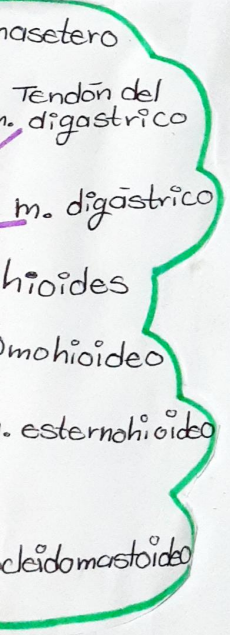 masetero
Tendón del
m. digastrico
m. digástrico
hioides
Omohioideo
. esternohioideo
cleidomastoideo